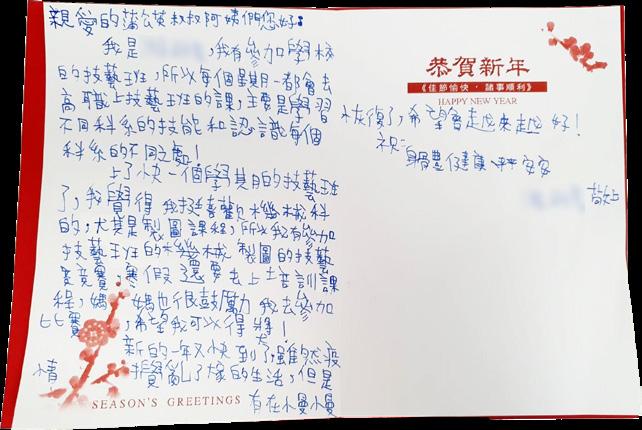 親愛的蒲公英叔叔阿姨們您好:
我是 ,我有參加學校
的技藝班,所以每個星期一都會去
高職上技藝班的課,主要是學習
不同科系的技能和認識每個
科系的不同之處!
上了快一個學期的技藝班
了,我覺得我挺喜歡機械科
的,尤其是製圖課程,所以我有參加
技藝班的機械製圖的技藝
競賽,寒假還要去上培訓課
程,媽媽也很鼓勵我去參加
比賽,希望我可以得獎!
新的一年又快到了,雖然疫
情攪亂了大家的生活,但是
有在慢慢
SEASON'S GREETINGS
恭賀新年
《佳節愉快.諸事順利》
HAPPY NEW YEAR
恢復了,希望會越來越好!
祝:
身體健康 平平安安
敬上